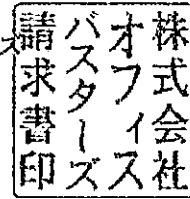 株式会社
オフィス
バスターズ
請求書印